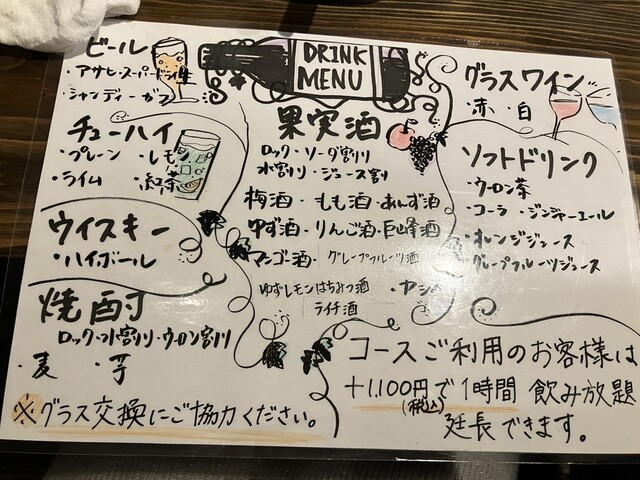 DRINK
MENU
ビール
・アサヒスーパードライ生
・シャンディーガフ
チューハイ
・プレーン ・レモン
・ライム ・紅茶
ウイスキー
・ハイボール
焼酎
ロック・水割り・ウーロン割り
・麦 ・芋
※グラス交換にご協力ください。
果実酒
ロック・ソーダ割り
水割り・ジュース割り
梅酒・もも酒・あんず酒
ゆず酒・りんご酒・巨峰酒
マンゴ酒・グレープフルーツ酒
ゆずレモンはちみつ酒
ライチ酒
グラスワイン
・赤 ・白
ソフトドリンク
・ウーロン茶
・コーラ ・ジンジャーエール
・オレンジジュース
・グレープフルーツジュース
コースご利用のお客様は
+1,100円で1時間 飲み放題
(税込)
延長できます。